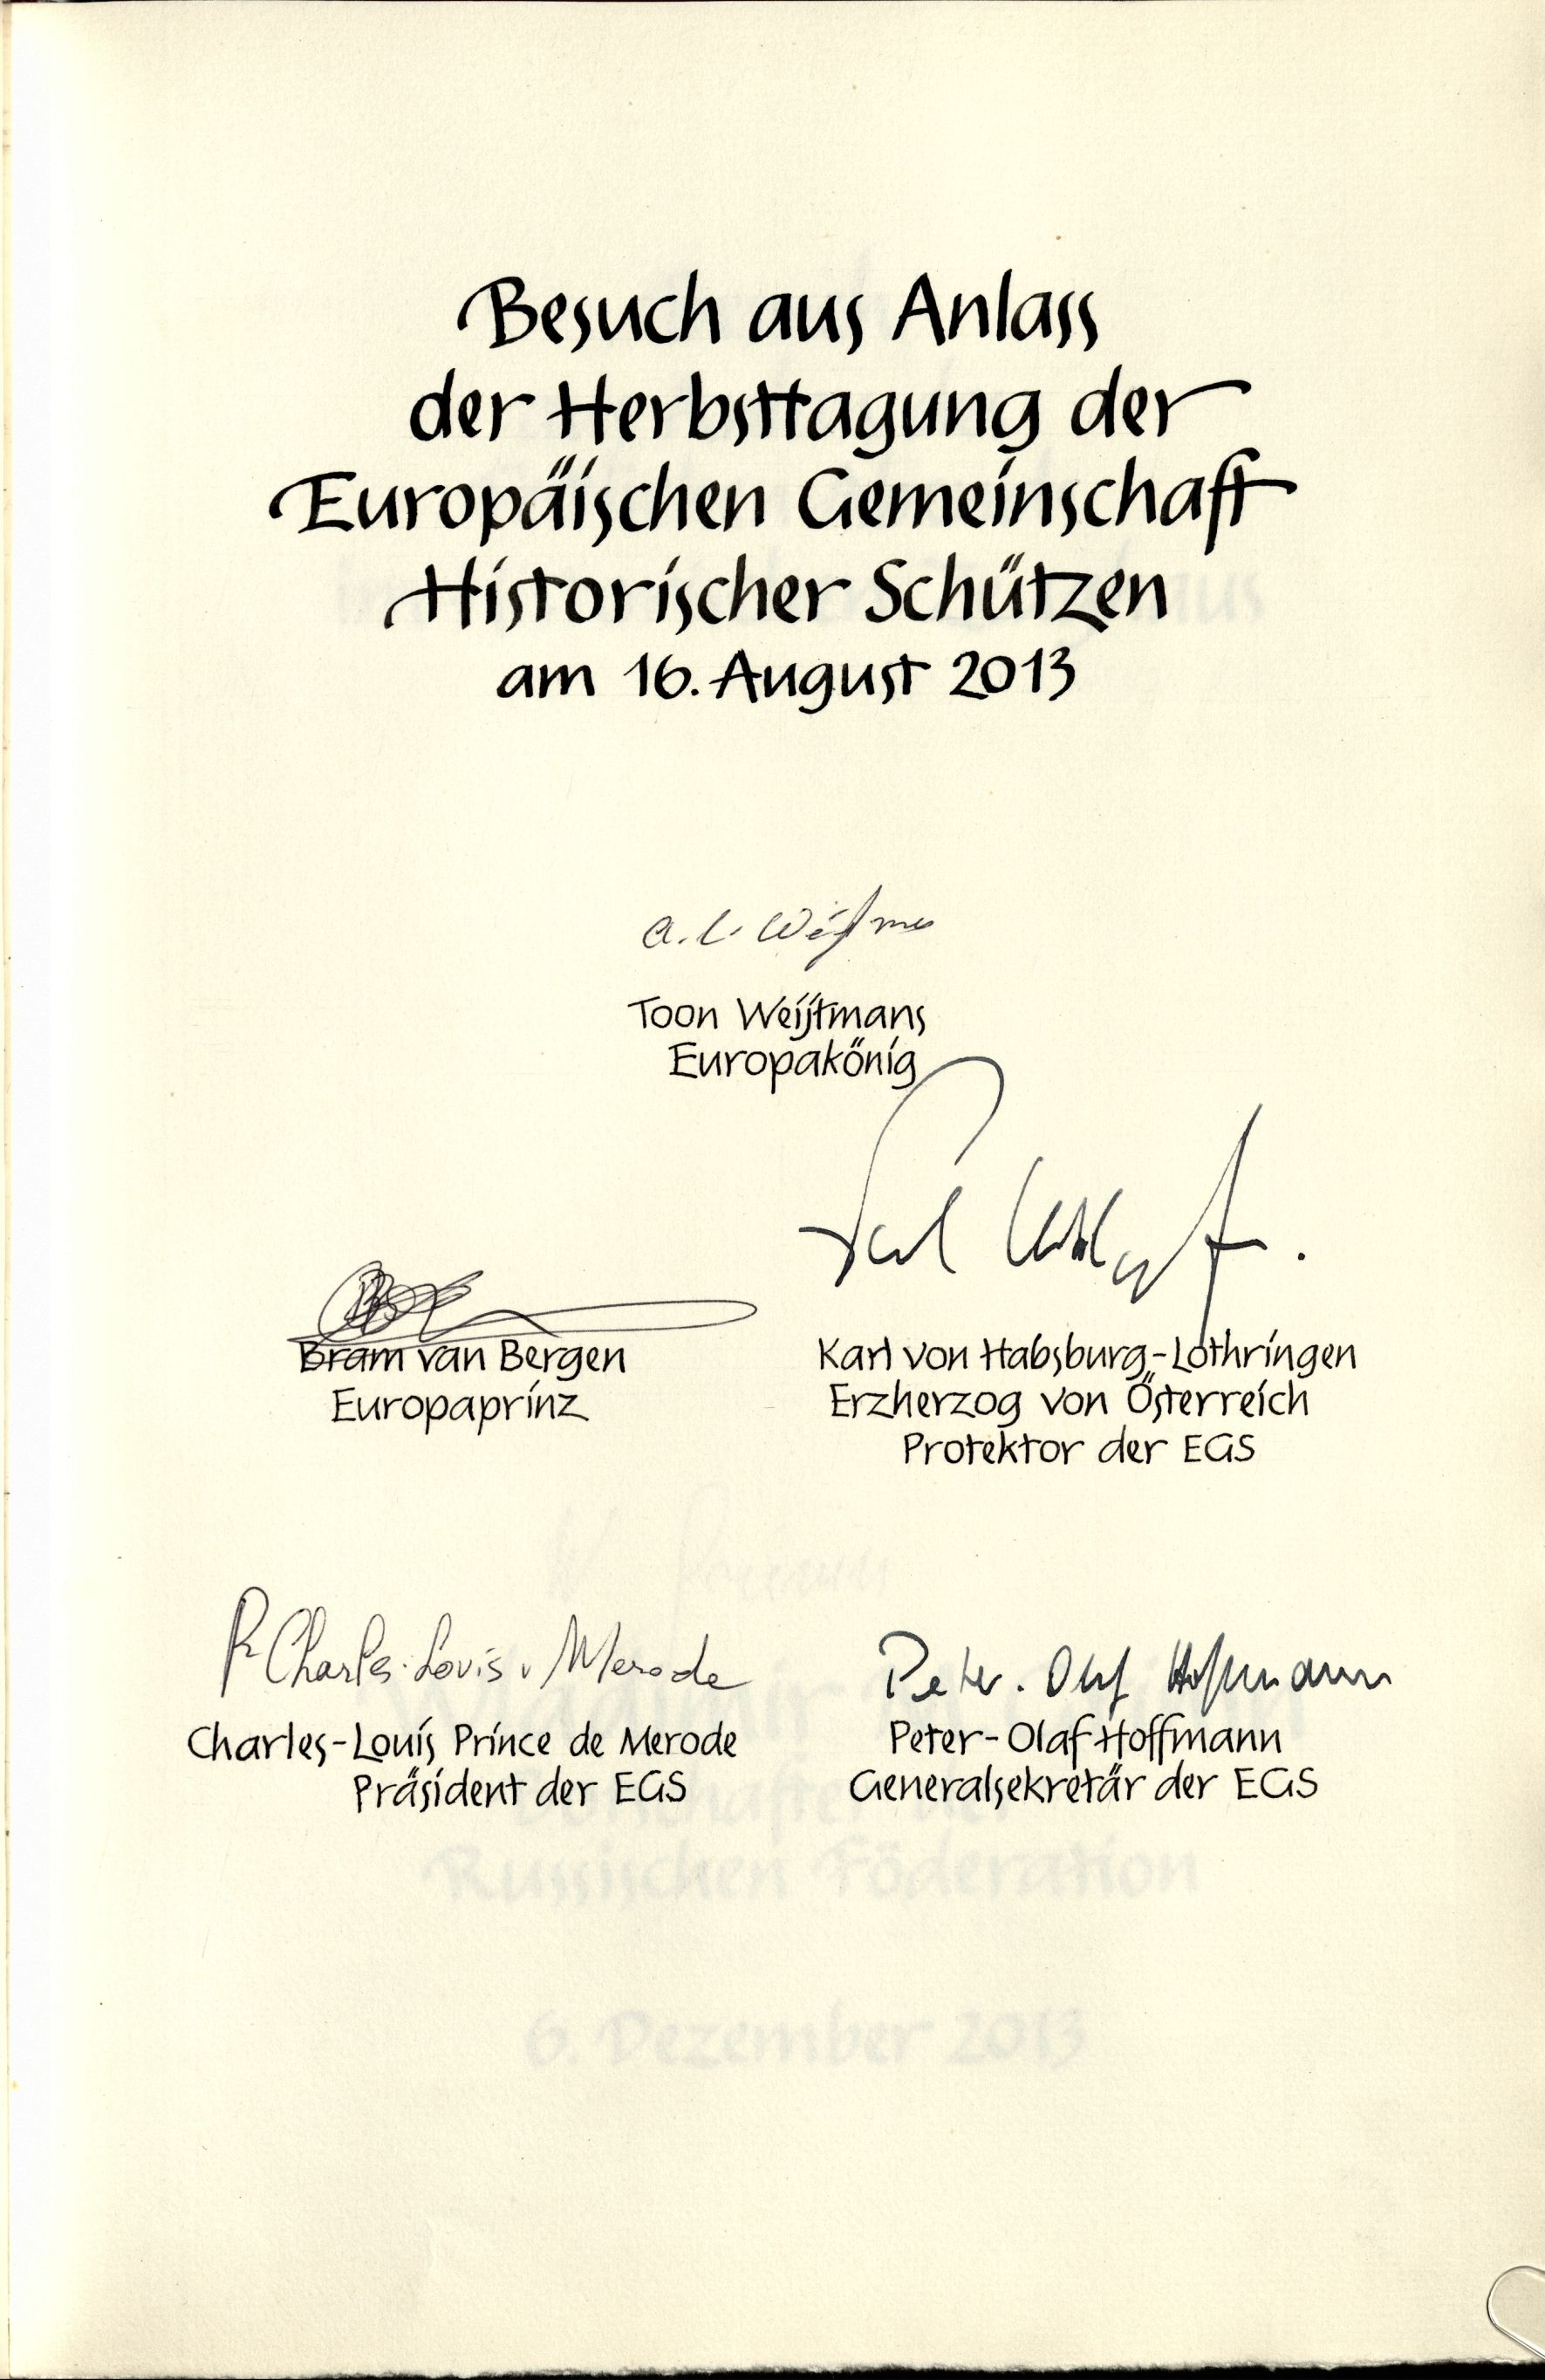 Besuch aus Anlass
der Herbsttagung der
Europäischen Gemeinschaft
Historischer Schützen
am 16. August 2013
Toon Weijtmans
Europakönig
Bram van Bergen
Europaprinz
Karl von Habsburg-Lothringen
Erzherzog von Österreich
Protektor der EGS
Charles-Louis v Merode
Charles-Louis Prince de Merode
Präsident der EGS
Peter-Olaf Hoffmann
Peter-Olaf Hoffmann
Generalsekretär der EGS
Russischen Föderation
6. Dezember 2013